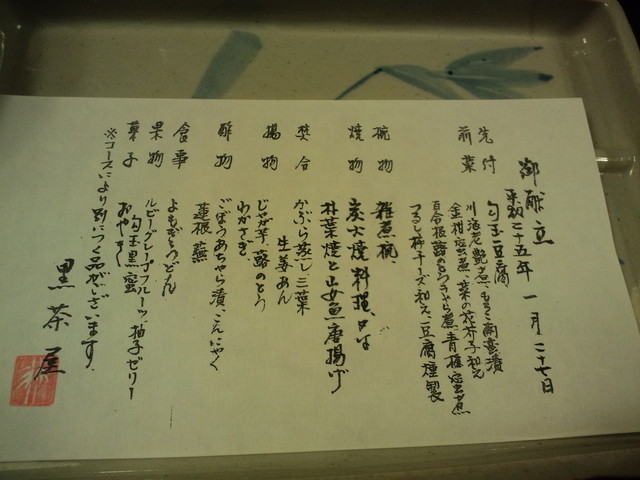 御献立
平成二十五年 一月二十七日
先付 勾玉豆腐
前菜 川海老艶煮、もろこ南蛮漬
金柑蜜煮、菜の花芥子和え
百合根、蕗のとうきゃら煮、青梅蜜煮
つるし柿チーズ和え、豆腐燻製
椀物 雑煮椀
焼物 炭火焼料理、又は
朴葉焼と山女魚唐揚げ
焚合 かぶら蒸し、三葉
生姜あん
揚物 じゃが芋、蕗のとう
わかさぎ
酢物 ごぼうあちゃら漬、こんにゃく
蓮根 蕪
食事 よもぎうどん
果物 ルビーグレープフルーツ、柚子ゼリー
菓子 勾玉黒蜜
おやき
※コースにより別につく品がございます。
黒茶屋